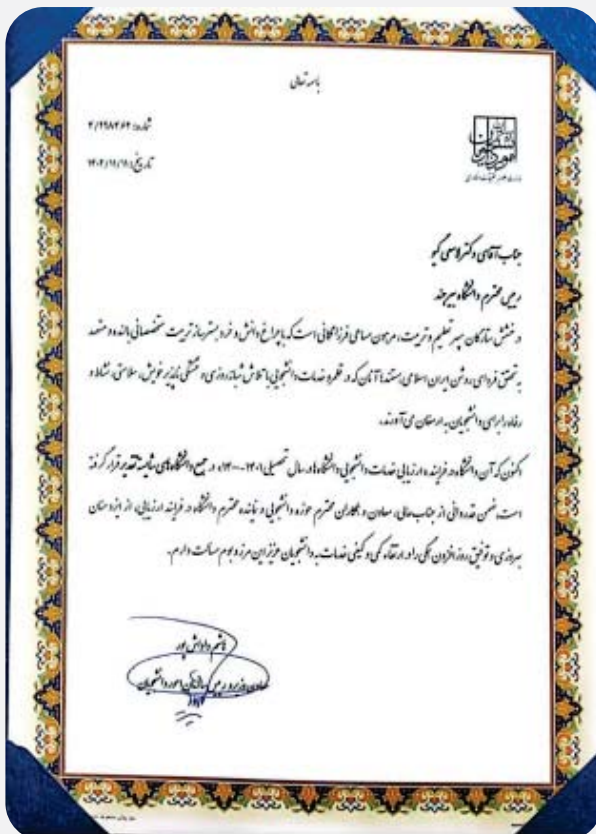 باسمه تعالی
شماره: ۴/۲۹۸۴۶۴
تاریخ: ۱۴۰۲/۱۱/۱۱
سازمان امور دانشجویان
وزارت علوم، تحقیقات و فناوری
جناب آقای دکتر لامعی گیو
رییس محترم دانشگاه بیرجند
درخشش ستارگان سپهر تعلیم و تربیت، مرهون مساعی فرزانگانی است که با چراغ دانش و خرد بسترساز تربیت متخصصانی بالنده و متعهد
به تحقق فردای روشن ایران اسلامی هستند؛ آنان که در قلمرو خدمات دانشجویی با تلاش شبانه‌روزی و خستگی ناپذیر خویش، سلامتی، نشاط و
رفاه را برای دانشجویان به ارمغان می‌آورند.
اکنون که آن دانشگاه در فرایند ارزیابی خدمات دانشجویی دانشگاه‌ها در سال تحصیلی ۱۴۰۱-۱۴۰۰، در جمع دانشگاه‌های شایسته تقدیر قرار گرفته
است، ضمن قدردانی از جناب‌عالی، معاون و همکاران محترم حوزه دانشجویی و نماینده محترم دانشگاه در فرایند ارزیابی، از ایزد منان
بهروزی و توفیق روز افزون همگی را در ارتقاء کمی و کیفی خدمات به دانشجویان عزیز این مرز و بوم مسالت دارم.
هاشم داداش پور
معاون وزیر و رییس سازمان امور دانشجویان